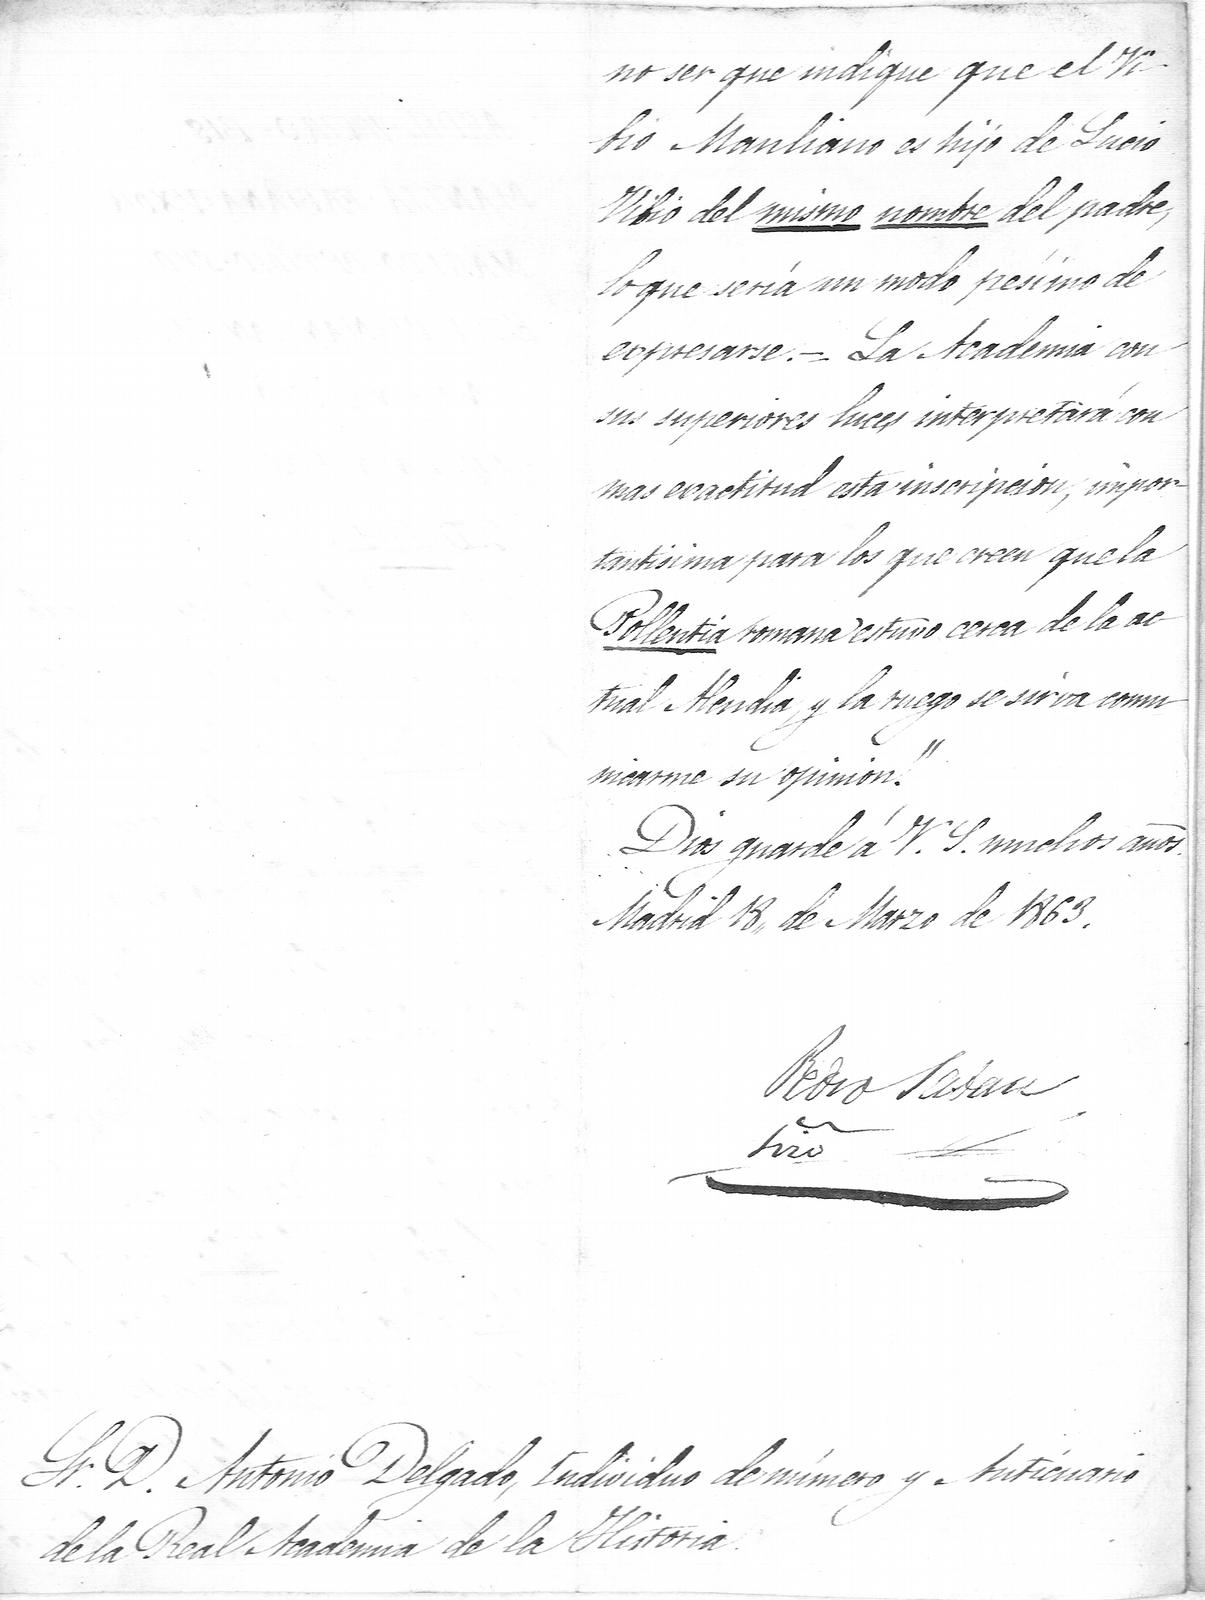 no ser que indique que el Vi-
bio Manliano es hijo de Lucio
Vibio del mismo nombre del padre,
lo que sería un modo pésimo de
expresarse.- La Academia con
sus superiores luces interpretará con
mas exactitud esta inscripcion, impor-
tantisima para los que creen que la
Pollentia romana estuvo cerca de la ac-
tual Alcudia, y la ruego se sirva comu-
nicarme su opinion."
Dios guarde á V. S. muchos años.
Madrid 18,, de Marzo de 1863.
Pedro Sabau
Sr. D. Antonio Delgado, Individuo de número y Anticuario
de la Real Academia de la Historia.